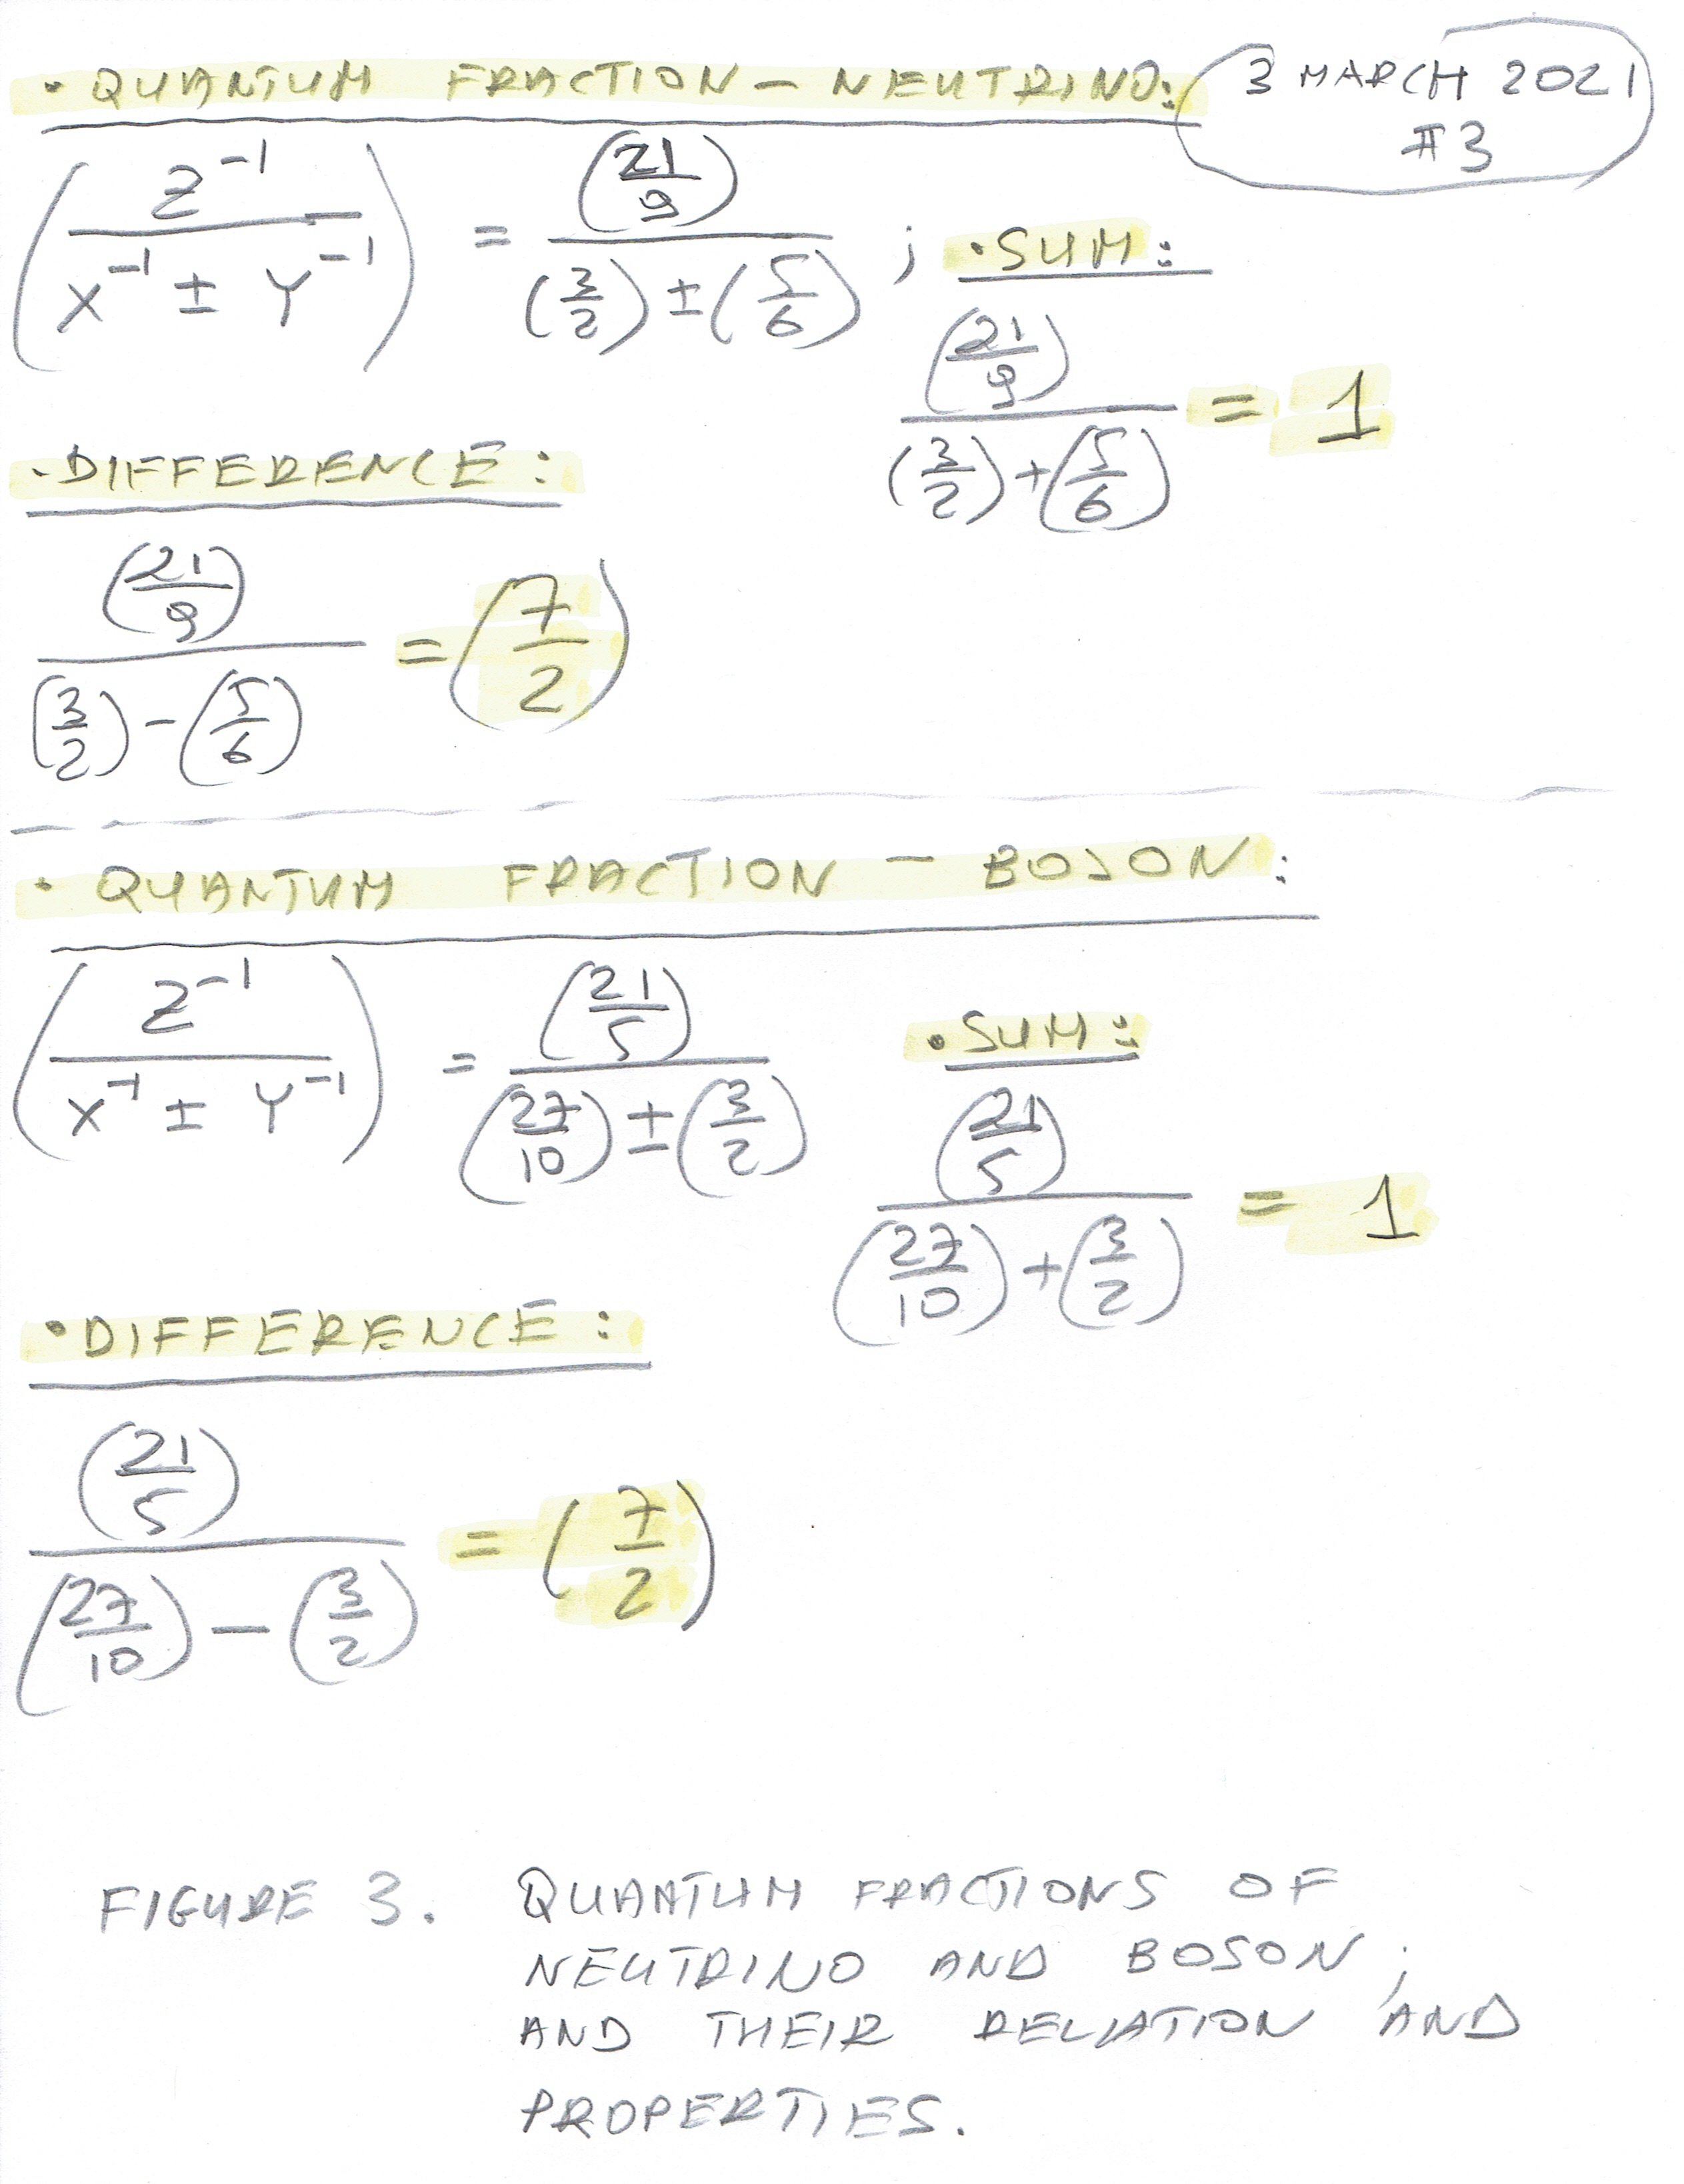 • QUANTUM FRACTION – NEUTRINO:
3 MARCH 2021
#3
(z⁻¹ / (x⁻¹ ± y⁻¹)) = (21/9) / ((3/2) ± (5/6)) ;
• SUM:
(21/9) / ((3/2) + (5/6)) = 1
• DIFFERENCE:
(21/9) / ((3/2) - (5/6)) = (7/2)
• QUANTUM FRACTION – BOSON:
(z⁻¹ / (x⁻¹ ± y⁻¹)) = (21/5) / ((27/10) ± (3/2))
• SUM:
(21/5) / ((27/10) + (3/2)) = 1
• DIFFERENCE:
(21/5) / ((27/10) - (3/2)) = (7/2)
FIGURE 3. QUANTUM FRACTIONS OF
NEUTRINO AND BOSON;
AND THEIR RELATION AND
PROPERTIES.